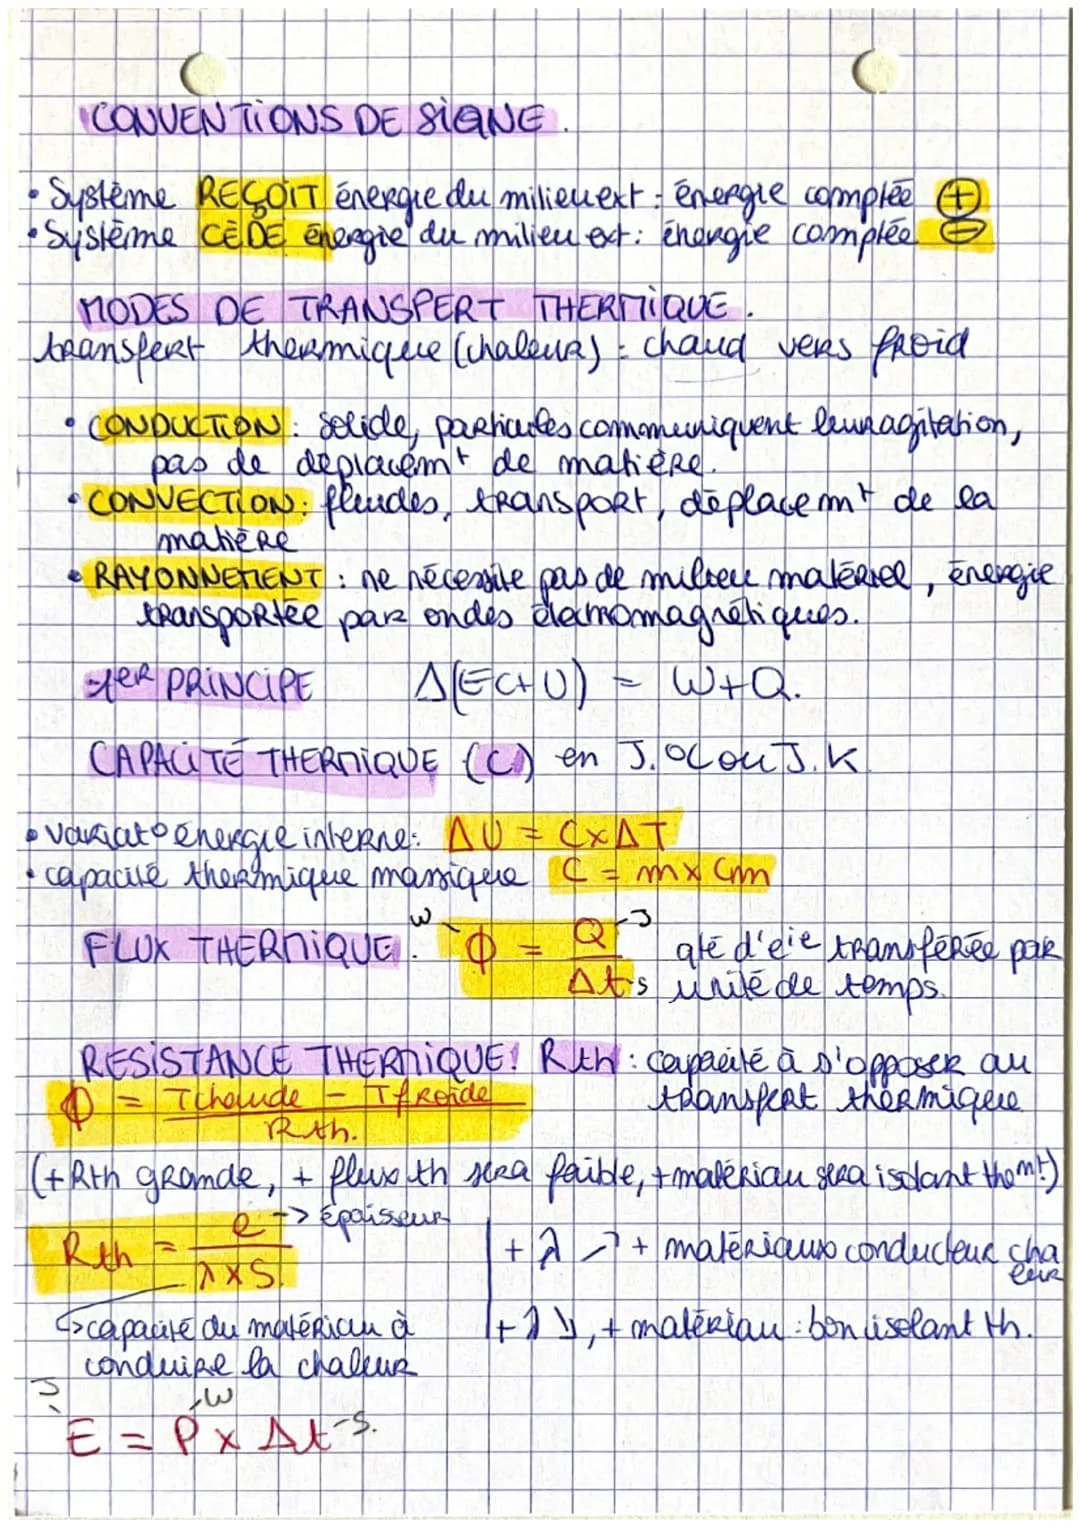 CONVENTIONS DE SIGNE.
• Système REÇOIT énergie du milieu ext : énergie comptée ⊕
• Système CÈDE énergie du milieu ext : énergie comptée ⊖
MODES DE TRANSFERT THERMIQUE.
transfert thermique (chaleur) : chaud vers froid
• CONDUCTION : solide, particules communiquent leur agitation,
pas de déplacemt de matière.
• CONVECTION : fluides, transport, déplacemt de la
matière
• RAYONNEMENT : ne nécessite pas de milieu matériel, énergie
transportée par ondes électromagnétiques.
1er PRINCIPE Δ(Ec+U) = W+Q.
CAPACITÉ THERMIQUE (C) en J.°C ou J.K
• variat° énergie interne : ΔU = C×ΔT
• capacité thermique massique C = m × Cm
FLUX THERMIQUE. W - Φ = Q - J / Δt - s qté d'eie transférée par
unité de temps.
RESISTANCE THERMIQUE : Rth : capacité à s'opposer au
transfert thermique
Φ = Tchaude - Tfroide / Rth.
(+ Rth grande, + flux th sera faible, + matériau sera isolant thmt)
Rth = e / λ×S. -> épaisseur
+ λ ↗ + matériaux conducteur cha
leur
↳ capacité du matériau à
conduire la chaleur
+ λ ↘, + matériau : bon isolant th.
J W
E = P × Δt - s.